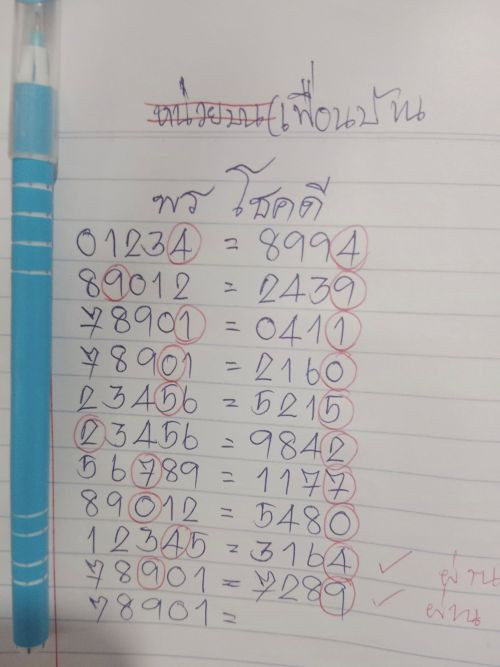 หน่วยบน(เพื่อนบ้าน
พร โชคดี
01234 = 8994
89012 = 2439
78901 = 0411
78901 = 2160
23456 = 5215
23456 = 9842
56789 = 1177
89012 = 5480
12345 = 3164 ✓ ผ่าน
78901 = 7289 ✓ ผ่าน
78901 =